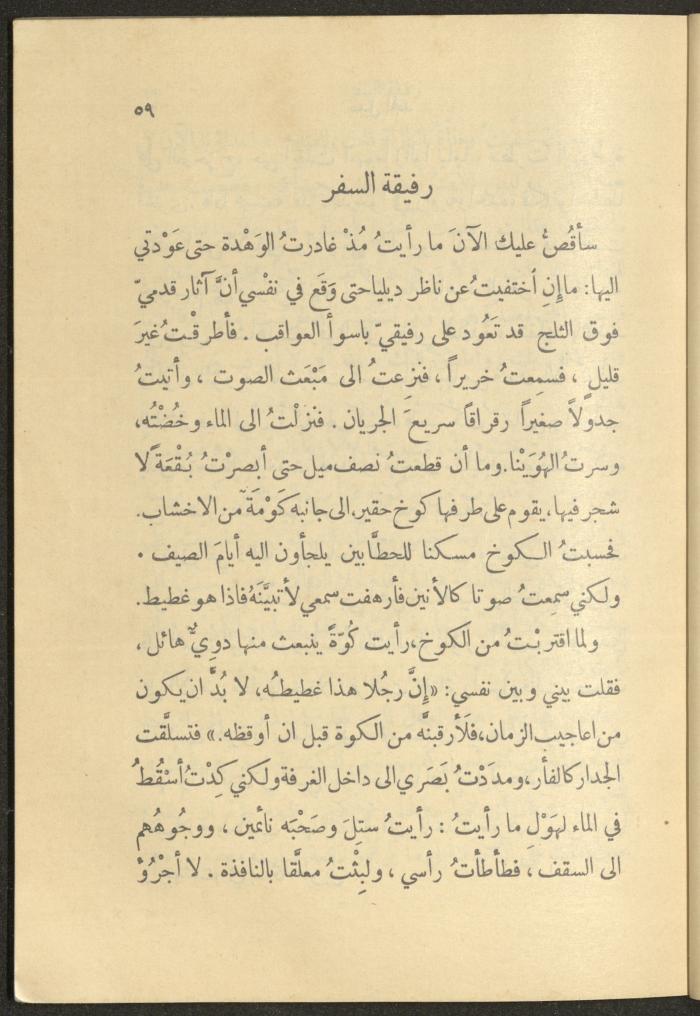 ٥٩
رفيقة السفر
سأقُصُّ عليك الآنَ ما رأيتُ مُذْ غادرتُ الوَهْدة حتى عَوْدتي
اليها: ماإنِ اختفيتُ عن ناظر ديلياحتى وَقَع في نفْسي أنَّ آثار قدميّ
فوق الثلج قد تَعُود على رفيقيّ باسوأ العواقب . فأطرقْتُ غيرَ
قليل ، فسمِعتُ خريراً ، فنَزِعتُ الى مَبْعَث الصوت ، وأتيتُ
جدولاً صغيراً رقراقاً سريعَ الجريان . فنزلْتُ الى الماء وخُضْتُه،
وسرتُ الهُوَيْنا. وما أن قطعتُ نصف ميل حتى أبصرْتُ بُقْعَةً لا
شجر فيها، يقوم على طرفها كوخ حقير، الى جانبه كَوْمَةٌ من الاخشاب.
فحسبتُ الكوخ مسكنا للحطَّابين يلجأون اليه أيامَ الصيف .
ولكني سمِعتُ صوتا كالأنين فأرهفت سمعي لأتبيَّنَهُ فاذا هو غطيط.
ولما اقتربْتُ من الكوخ، رأيت كُوّةً ينبعث منها دويٌّ هائل ،
فقلت بيني وبين نفسي: «إنَّ رجُلا هذا غطيطُه، لا بُدَّ ان يكون
من اعاجيب الزمان، فلَأرقبنَّه من الكوة قبل ان أوقظه.» فتسلَّقت
الجدار كالفأر، ومدَدْتُ بَصَري الى داخل الغرفة ولكني كِدْتُ أسْقُطُ
في الماء لهَوْلِ ما رأيتُ : رأيتُ ستِلَ وصَحْبَه نائمين ، ووجُوهُهم
الى السقف ، فطأطأتُ رأسي ، ولبِثْتُ معلَّقا بالنافذة . لا أجْرُؤ